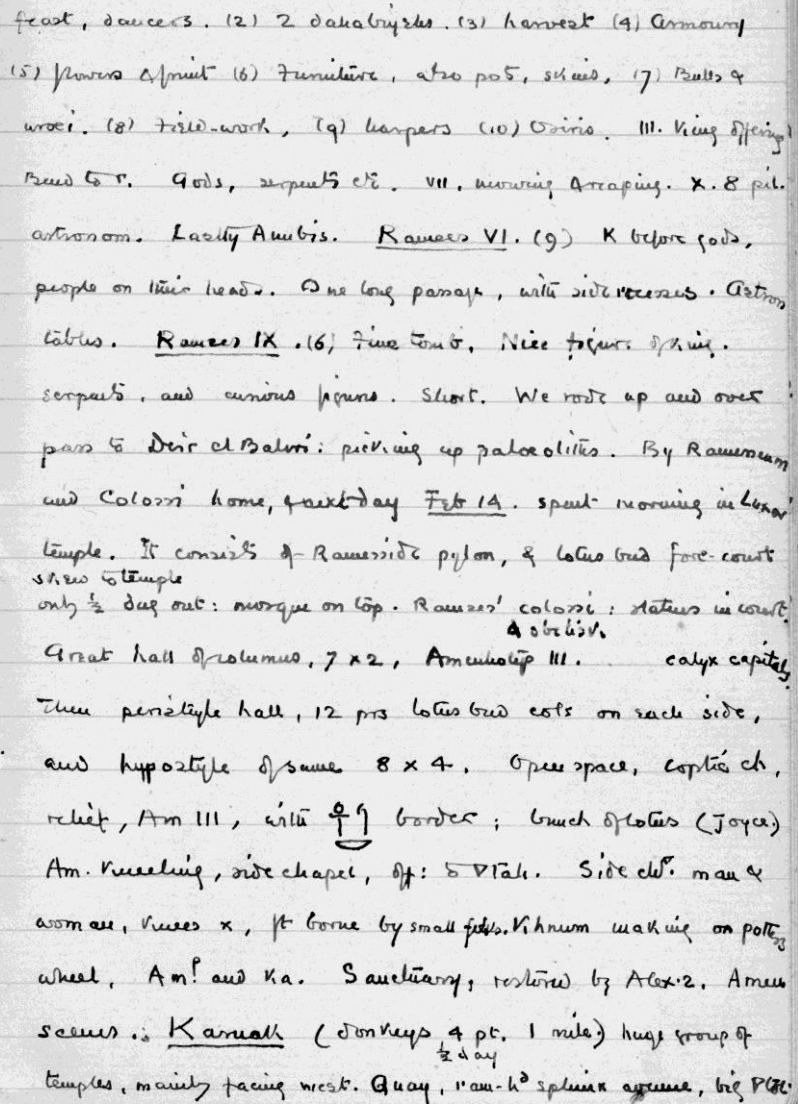 feast, dancers. (2) 2 dahabiyehs. (3) harvest (4) armoury
(5) flowers & fruit (6) Furniture, also pot, skins, (7) Bulls &
uraei. (8) Field-work, (9) harpers (10) Osiris. III. King offering
Bend to r. Gods, serpents etc. VII. mowing & reaping. X. 8 pil.
astronom. Lastly Anubis. Rameses VI. (9) K before gods,
people on their heads. One long passage, with side recesses. Astron
tables. Rameses IX. (6) Fine tomb. Nice figure of king.
serpents, and curious figures. Short. We rode up and over
pass to Deir el Bahri: picking up palaeoliths. By Ramesseum
and Colossi home, & next day Feb 14. spent morning in Luxor
temple. It consists of Ramesside pylon, & lotus bud fore-court
skew to temple
only ½ dug out: mosque on top. Ramses' colossi: statues in court.
& obelisk.
Great hall of columns, 7 x 2, Amenhotep III. calyx capitals
Then peristyle hall, 12 prs lotus bud cols on each side,
and hypostyle of same 8 x 4. Open space, coptic ch,
relief, Am III, with border; bunch of lotus (Joyce.)
Am. kneeling, side chapel, off: to Ptah. Side ch. man &
woman, knees x, ft borne by small Khnum making on potters
wheel, Am. and Ka. Sanctuary, restored by Alex. 2. Amen
scenes. Karnak (donkeys 4 pt. 1 mile.) huge group of
½ day
temples, mainly facing west. Quay, ram-hd sphinx avenue, big